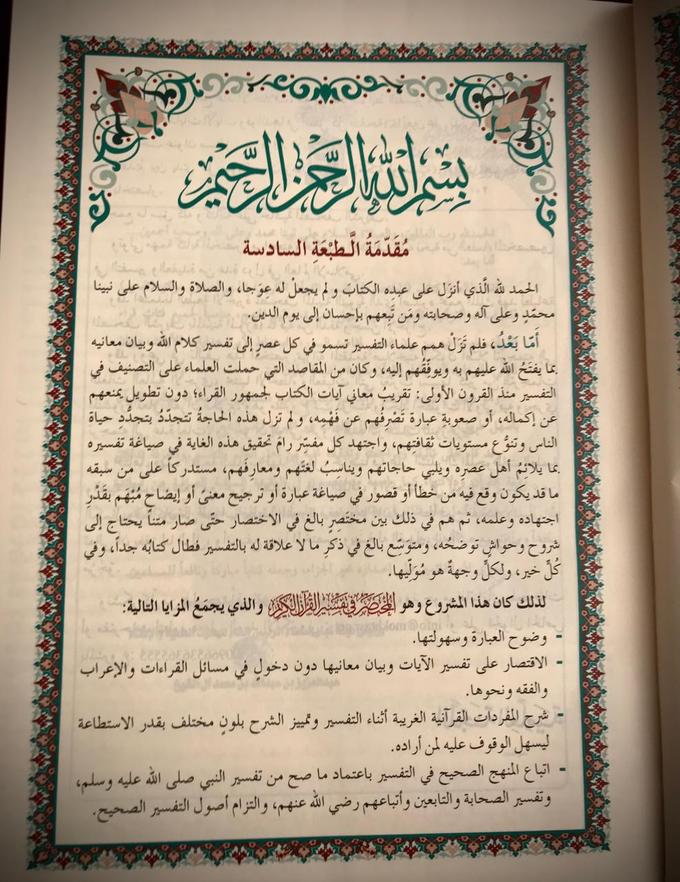 بسم الله الرحمن الرحيم
مُقَدّمَةُ الطَّبْعَةِ السادسة
الحمد لله الَّذي أنزَل على عبدِه الكتابَ ولم يجعلْ له عِوَجا، والصلاة والسلام على نبينا
محمّدٍ وعلى آله وصحابته ومَن تَبِعهم بإحسان إلى يوم الدين.
أَمّا بَعْدُ، فلم تَزَلْ همم علماء التفسير تسمو في كل عصرٍ إلى تفسير كلام الله وبيان معانيه
بما يفتَحُ الله عليهم به ويوفِّقُهم إليه، وكان من المقاصد التي حملت العلماء على التصنيف في
التفسير منذ القرون الأولى: تقريبُ معاني آيات الكتاب لجمهور القراء؛ دون تطويل يمنعهم
عن إكماله، أو صعوبةِ عبارة تَصْرِفُهم عن فَهْمِه، ولم تزل هذه الحاجةُ تتجدّدُ بتجدُّدِ حياة
الناس وتنوُّع مستويات ثقافتهم، واجتهد كل مفسِّر رامَ تحقيق هذه الغاية في صياغة تفسيره
بما يلائِمُ أهل عصرِه ويلبي حاجاتهم ويناسِبُ لغتَهم ومعارِفَهم، مستدركاً على من سبقه
ما قد يكون وقع فيه من خطأ أو قصور في صياغة عبارة أو ترجيح معنىً أو إيضاحِ مُبْهَم بقَدْرِ
اجتهاده وعلمه، ثم هم في ذلك بين مختَصِرٍ بالغ في الاختصار حتّى صار متناً يحتاج إلى
شروح وحواشٍ توضحُه، ومتوَسّع بالغ في ذكرِ ما لا علاقة له بالتفسير فطال كتابُه جداً، وفي
كُلٍّ خير، ولكلٍّ وجهةٌ هو مُوَلّيها.
لذلك كان هذا المشروع وهو المختصر في تفسير القرآن الكريم والذي يجمَعُ المزايا التالية:
- وضوح العبارة وسهولتها.
- الاقتصار على تفسير الآيات وبيان معانيها دون دخولٍ في مسائل القراءات والإعراب
والفقه ونحوها.
- شرح المفردات القرآنية الغريبة أثناء التفسير وتمييز الشرح بلونٍ مختلف بقدر الاستطاعة
ليسهل الوقوف عليه لمن أراده.
- اتباع المنهج الصحيح في التفسير باعتماد ما صح من تفسير النبي صلى الله عليه وسلم،
وتفسير الصحابة والتابعين وأتباعهم رضي الله عنهم، والتزام أصول التفسير الصحيح.